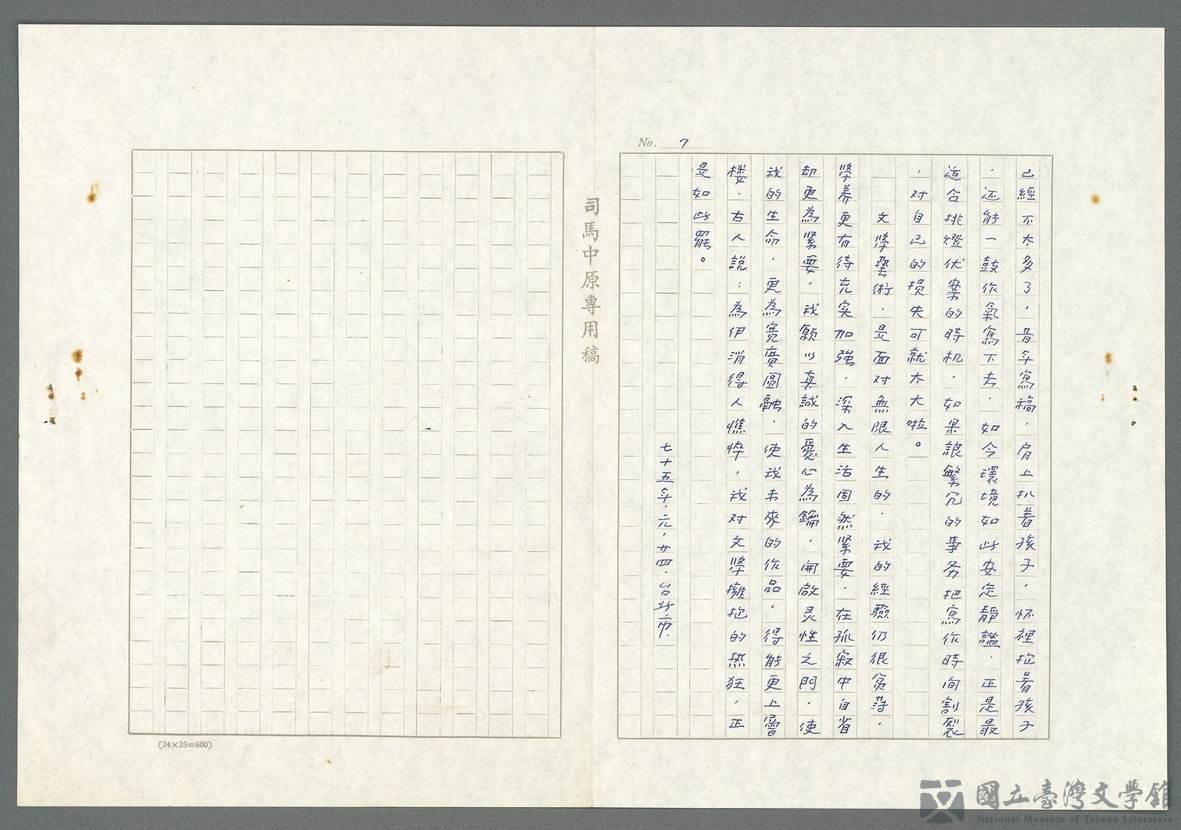 No. 7
已經不太多了，昔年寫稿，肩上扒着孩子，怀裡抱着孩子
，还能一鼓作氣寫下去，如今環境如此安定靜謐，正是最
适合挑燈伏案的時机，如果讓繁冗的事务把寫作時间割裂
，对自己的损失可就太大啦。
文學藝術，是面对無限人生的，我的經驗仍很貧薄，
學养更有待充实加強，深入生活固然紧要，在孤寂中自省
却更為紧要，我願以真誠的愛心為鑰，開啟灵性之門，使
我的生命，更為寬廣圓融，使我未來的作品，得能更上層
楼，古人說：為伊消得人憔悴，我对文學擁抱的热狂，正
是如此罷。
七十五年，元，廿四，台北市
司馬中原專用稿
(24×25=600)
國立臺灣文學館
National Museum of Taiwan Literature